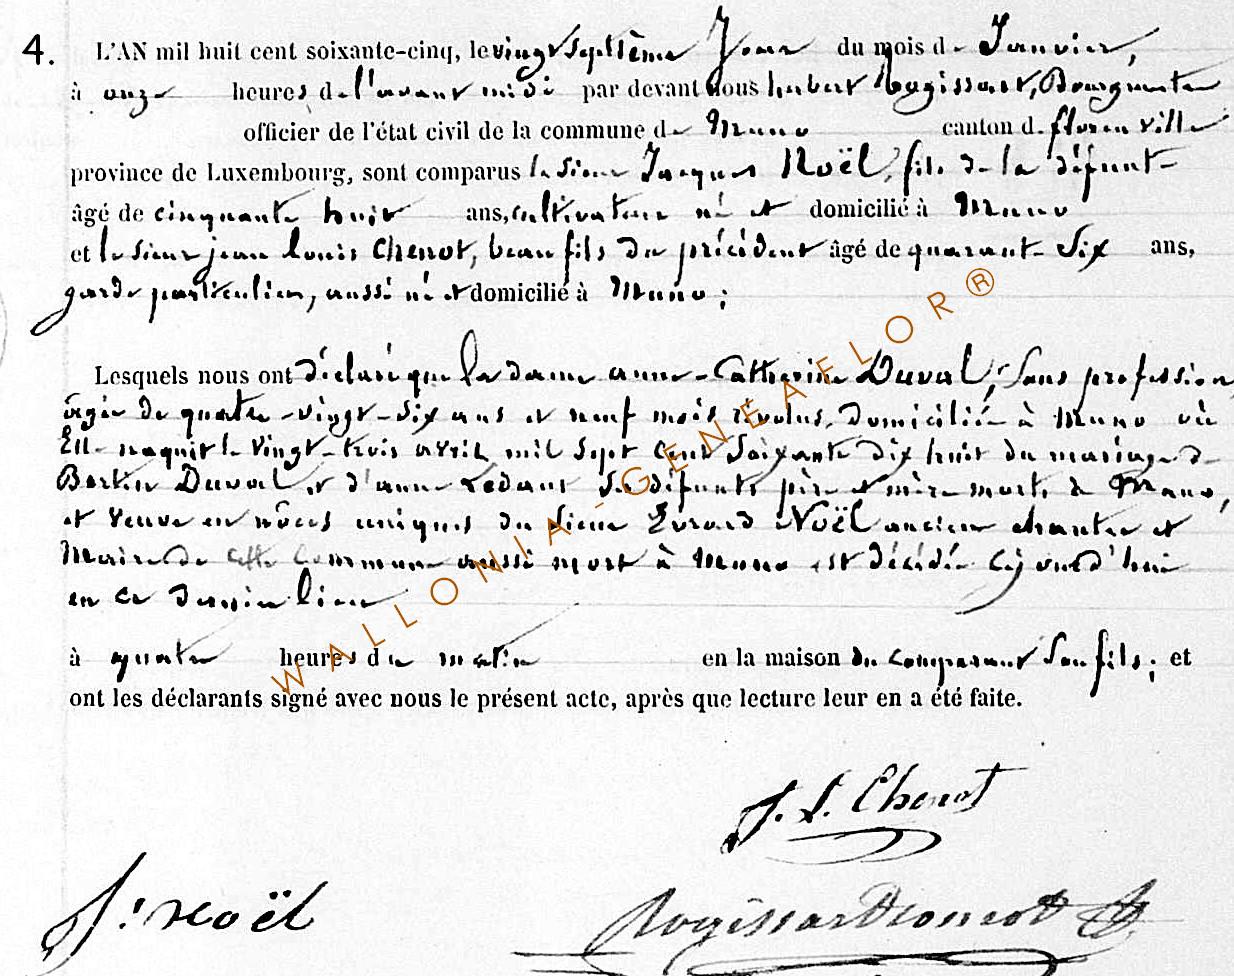 4. L'AN mil huit cent soixante-cinq, le vingt septième Jour du mois de Janvier,
à onze heures de l'avant midi par devant nous hubert Rogissart, Bourgmestre
officier de l'état civil de la commune de Muno canton de florenville
province de Luxembourg, sont comparus le sieur Jacques Noël, fils de la défunte
âgé de cinquante huit ans, cultivateur né et domicilié à Muno
et le sieur jean louis Chenot, beau fils du précédent âgé de quarante Six ans,
garde particulier, aussi né et domicilié à Muno;
Lesquels nous ont déclaré que la dame anne-Catherine Duval, Sans profession,
âgée de quatre-vingt-six ans et neuf mois révolus, domiciliée à Muno où
Elle naquit le vingt-trois avril mil sept cent Soixante dix huit du mariage de
Bertin Duval et d'anne Ledant Ses défunts père et mère morts à Muno,
et veuve en nôces uniques du Sieur Evrard Noël ancien chantre et
Maire de cette Commune aussi mort à Muno est décédée cejourd'hui
en ce dernier lieu
à quatre heures du matin en la maison du comparant Son fils; et
ont les déclarants signé avec nous le présent acte, après que lecture leur en a été faite.
J. L. Chenot
J. Noël
Rogissart
WALLONIA-GENEAFLOR®